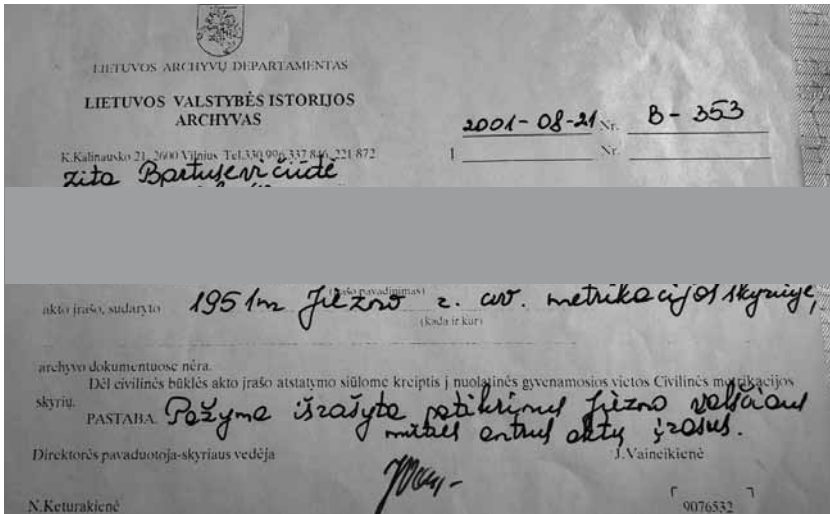 LIETUVOS ARCHYVŲ DEPARTAMENTAS
LIETUVOS VALSTYBĖS ISTORIJOS
ARCHYVAS
2001-08-21 Nr. B-353
K.Kalinausko 21, 2600 Vilnius Tel.330 996, 337 846, 221 872
Į Nr.
Zita Bartusevičiūtė
(įrašo pavadinimas)
akto įrašo, sudaryto 1951m Jiezno r. metrikacijos skyriuje,
(kada ir kur)
archyvo dokumentuose nėra.
Dėl civilinės būklės akto įrašo atstatymo siūlome kreiptis į nuolatinės gyvenamosios vietos Civilinės metrikacijos
skyrių.
PASTABA. Pažyma išrašyta patikrinus Jiezno valsčiaus
mirties antrus aktų įrašus.
Direktorės pavaduotoja-skyriaus vedėja J.Vaineikienė
N.Keturakienė
9076532